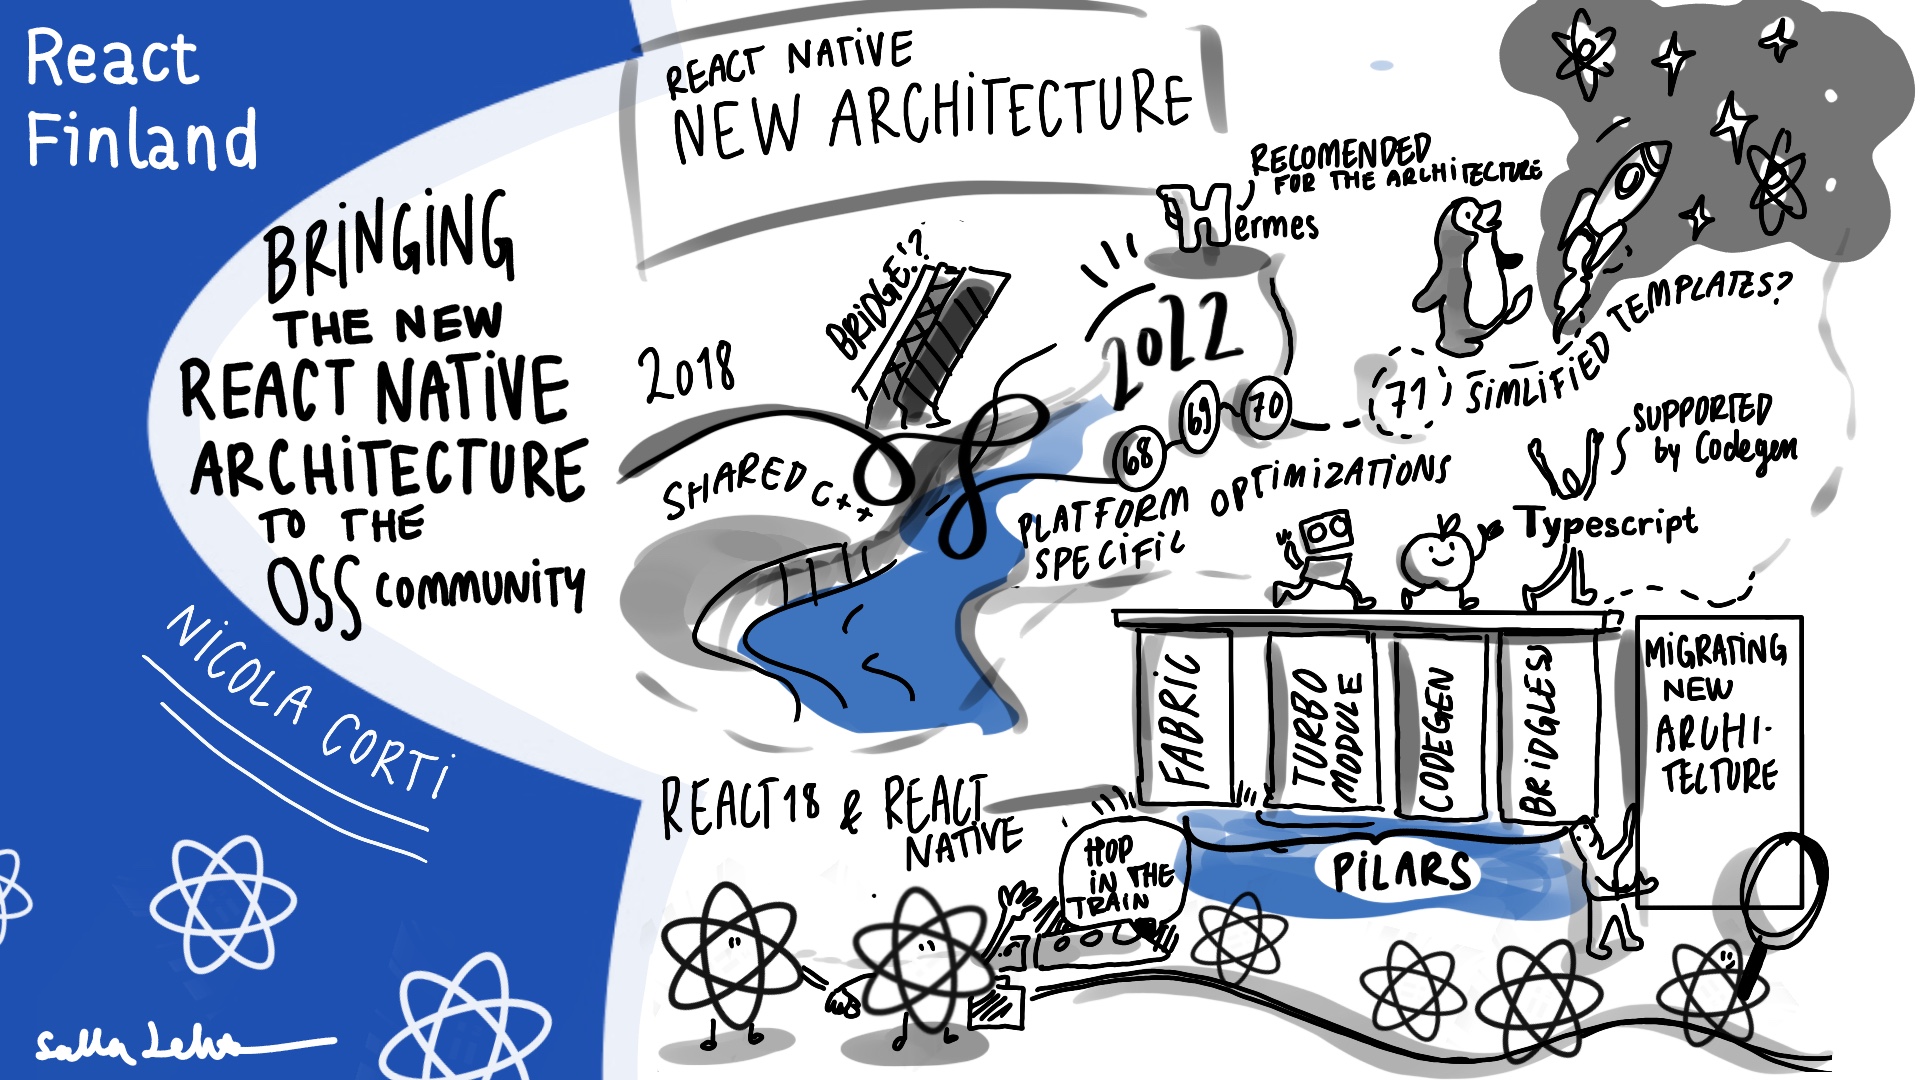 React
Finland
BRINGING
THE NEW
REACT NATIVE
ARCHITECTURE
TO THE
OSS COMMUNITY
NICOLA CORTI
REACT NATIVE
NEW ARCHITECTURE
RECOMENDED
FOR THE ARCHITECTURE
Hermes
BRIDGE!?
2018
2022
SHARED C++
68
69
70
71
SIMLIFIED TEMPLATES?
PLATFORM OPTIMIZATIONS
SPECIFIC
SUPPORTED
by Codegen
Typescript
FABRIC
TURBO
MODULE
CODEGEN
BRIDGLES
PILARS
MIGRATING
NEW
ARCHI-
TECTURE
REACT 18 & REACT
NATIVE
HOP
IN THE
TRAIN